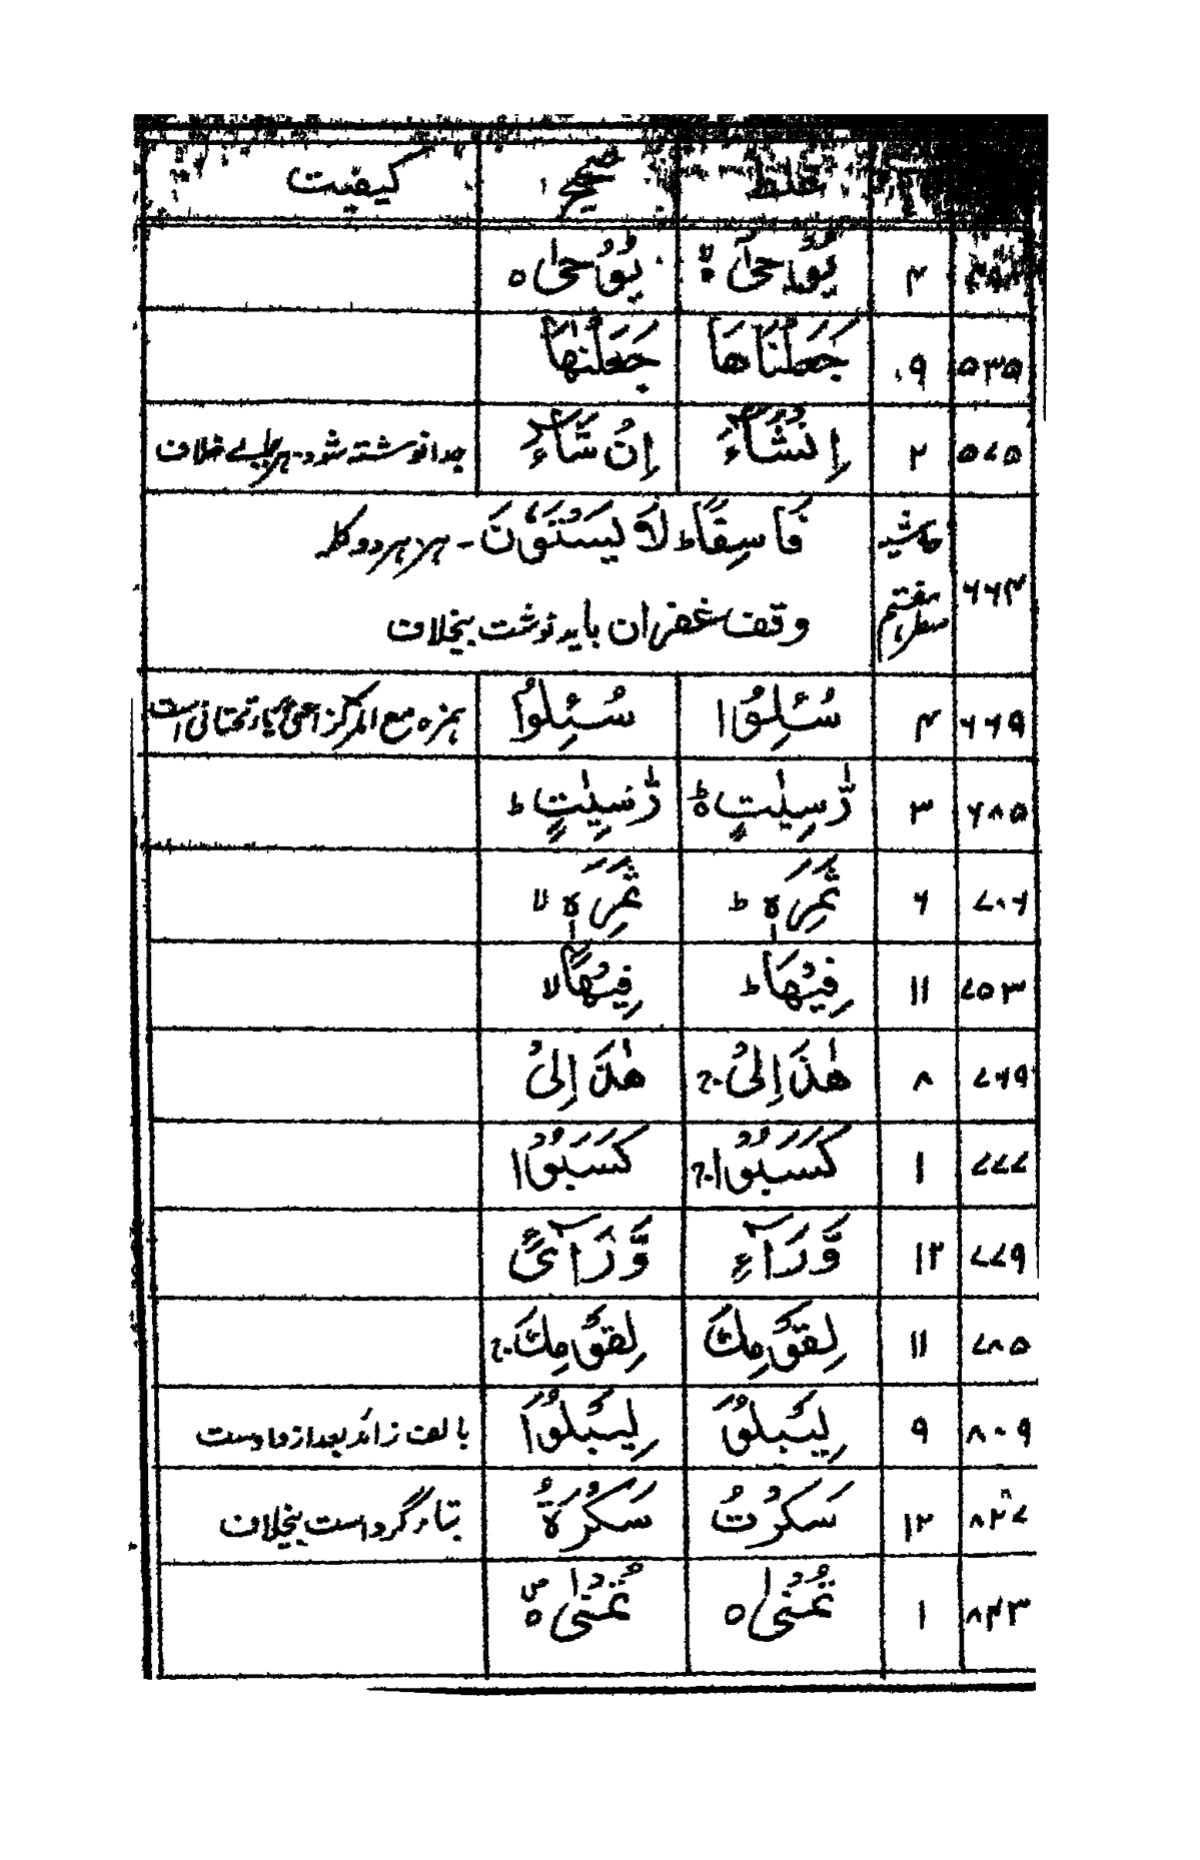 غلط صحیح کیفیت
۴ یُّوْحٰۤى ۙ یُوْحٰى ہ
۵۳۵ ۹ جَعَلْنَاهَا جَعَلْنٰهَا
۵۷۵ ۲ اِنْشَآءَ اِنْ شَآءَ جدا نوشتہ شود۔ ہر جا بے خلاف
۶۶۴ حاشیہ فَاسِقًا ط لَا یَسْتَوٗنَ ۔ ہر ہر دو کلہ
ہفتم سطر وقف غفران باید نوشت بیخلاف
۶۶۹ ۴ سُئِلُوْا سُئِلُوا ہمزہ مع المرکز اعنی یاء تحتانی است
۶۸۵ ۳ رّٰسِیٰتٍ ؕ رّٰسِیٰتٍ ط
۷۰۶ ۶ ثَمَرَةٍ ط ثَمَرَةٍ لا
۷۵۳ ۱۱ فِیْهَا ط فِیْهَا لا
۷۶۹ ۸ هٰذَا اِلَىْ هٰذَا اِلَىْ
۷۷۷ ۱ كَسَبُوْا كَسَبُوْا
۷۷۹ ۱۲ وَّرَآءِ وَّرَآىِٕ
۷۸۵ ۱۱ لِقَوْمِكَ لِقَوْمِكَ
۸۰۹ ۹ لِیَبْلُوَ لِیَبْلُوَا با لف زائد بعد از واوست
۸۲۷ ۱۲ سَكْرَتُ سَكْرَةُ بتاء گرد است بیخلاف
۸۴۳ ۱ تُمْنٰى ہ تُمْنٰى ہ ص